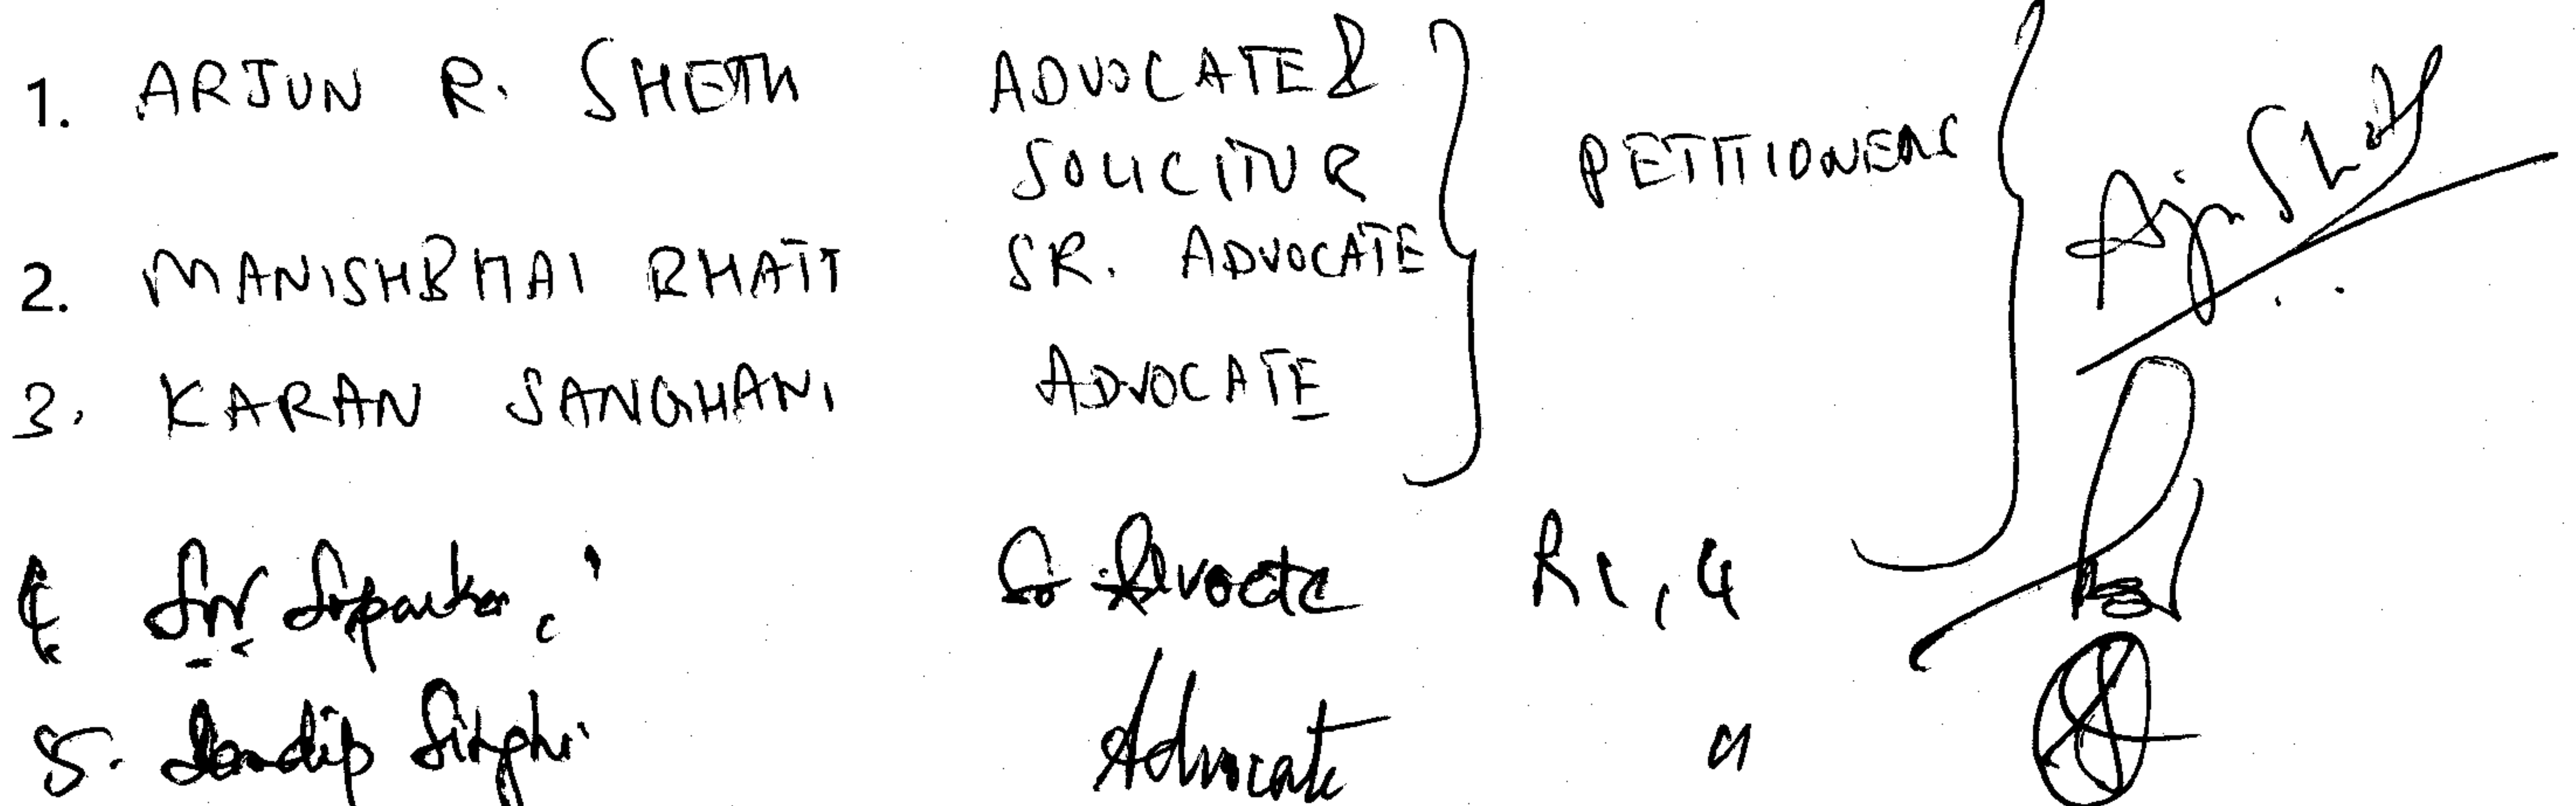 1. ARJUN R. SHETH ADVOCATE &
SOLICITOR PETITIONERS Arjun Sheth
2. MANISHBHAI BHATT SR. ADVOCATE
3. KARAN SANGHANI ADVOCATE
4. Soparkar, Sr Advocate R1, 4
5. Sandip Singhi Advocate "